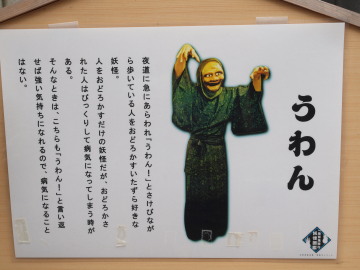 うわん
夜道に急にあらわれ『うわん！』とさけびなが
ら歩いている人をおどろかすいたずら好きな
妖怪。
人をおどろかすだけの妖怪だが、おどろかさ
れた人はびっくりして病気になってしまう時が
ある。
そんなときは、こちらも『うわん！』と言い返
せば強い気持ちになれるので、病気になること
はない。